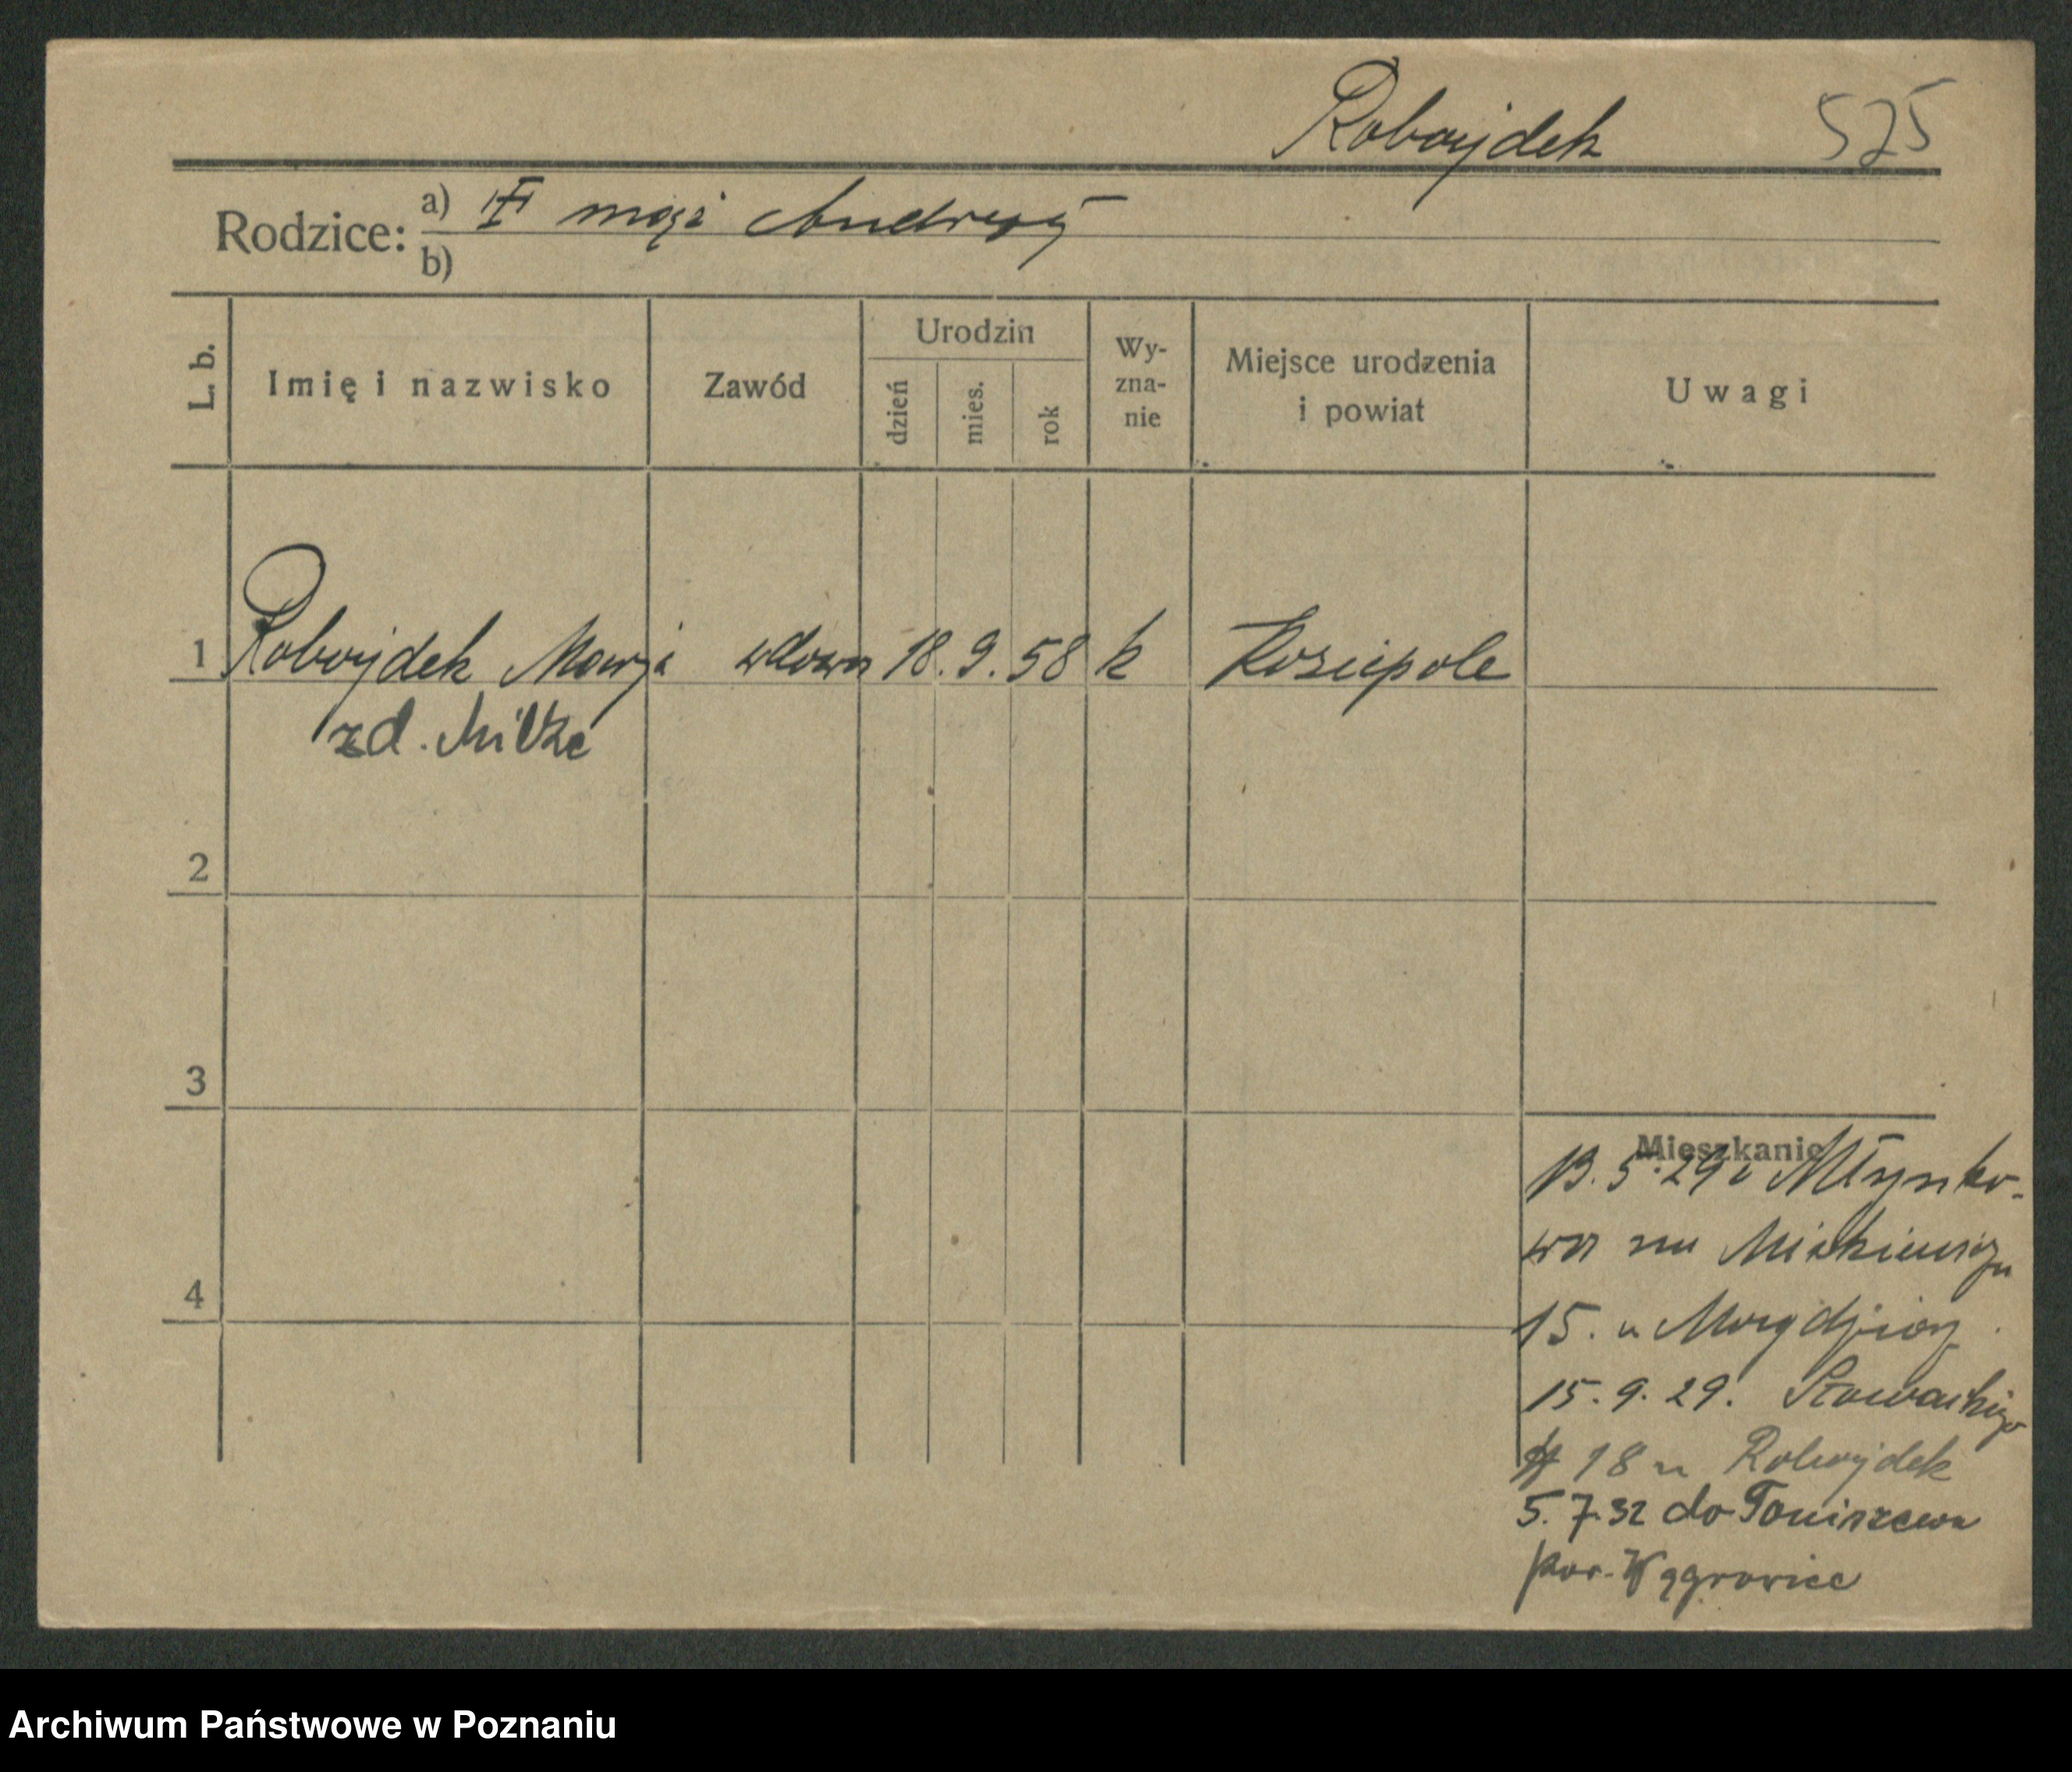 Robojdek 525
Rodzice: a) II mąż Andrzej
b)
L. b. Imię i nazwisko Zawód Urodzin dzień mies. rok Wy-zna-nie Miejsce urodzenia i powiat Uwagi
1 Robojdek Marja wdowa 18. 9. 58 k Kosiepole
zd. Milke
2
3
Mieszkanie
13. 5. 29 z Młynko-
wa na Mickiewicza
4
15. u
15. 9. 29. Słowackiego
18 u Robojdek
5. 7. 32 do Toniszewa
pow. Wągrowiec
Archiwum Państwowe w Poznaniu